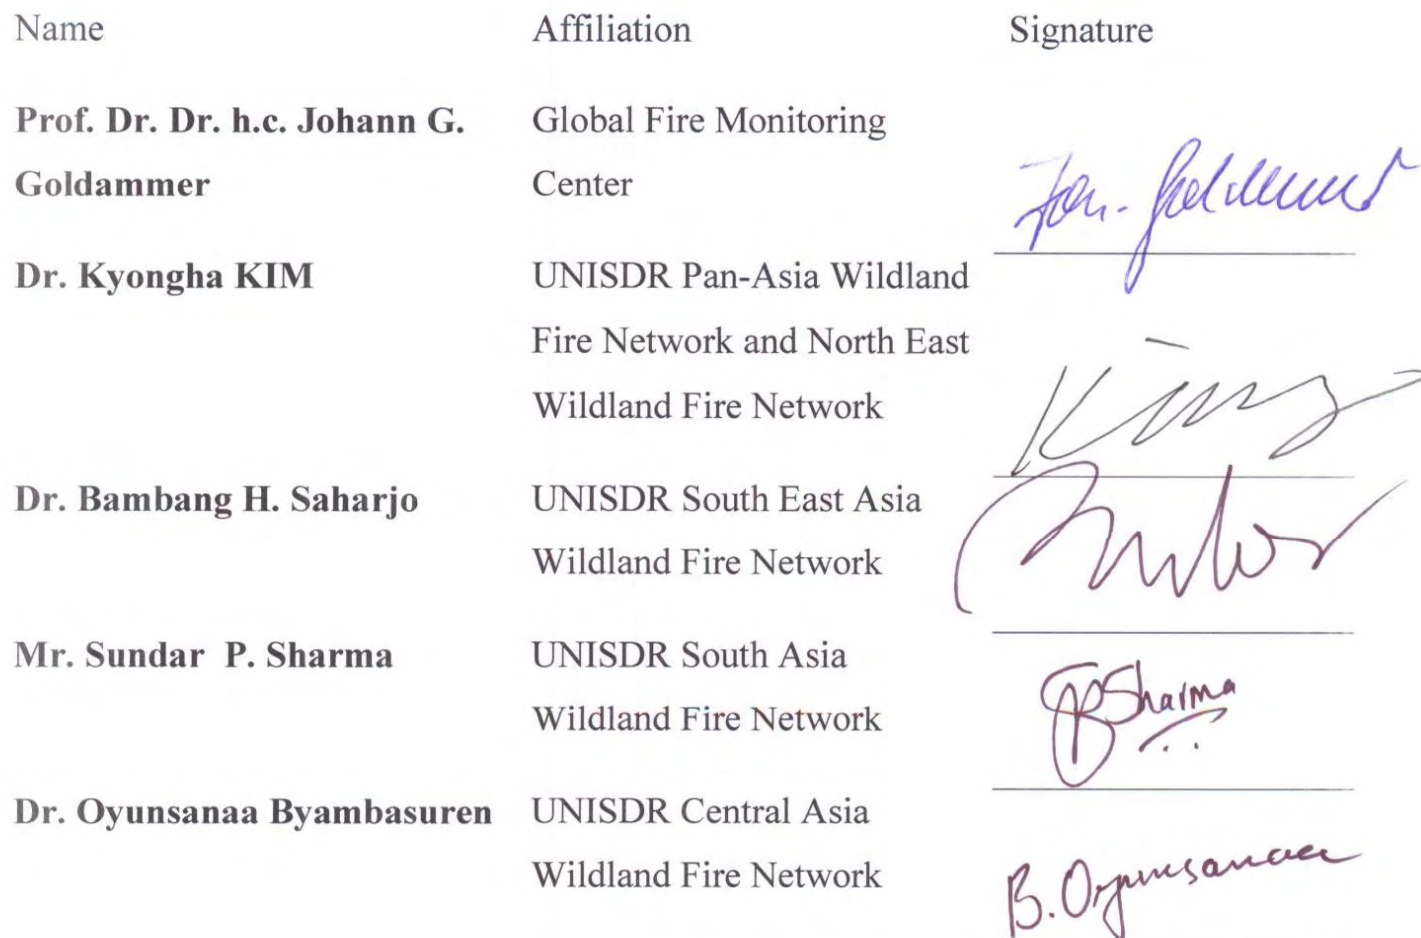 Name Affiliation Signature
Prof. Dr. Dr. h.c. Johann G. Global Fire Monitoring
Goldammer Center
Dr. Kyongha KIM UNISDR Pan-Asia Wildland
Fire Network and North East
Wildland Fire Network
Kim
Dr. Bambang H. Saharjo UNISDR South East Asia
Wildland Fire Network
Mr. Sundar P. Sharma UNISDR South Asia
SPSharma
Wildland Fire Network
Dr. Oyunsanaa Byambasuren UNISDR Central Asia
Wildland Fire Network
B. Oyunsanaa